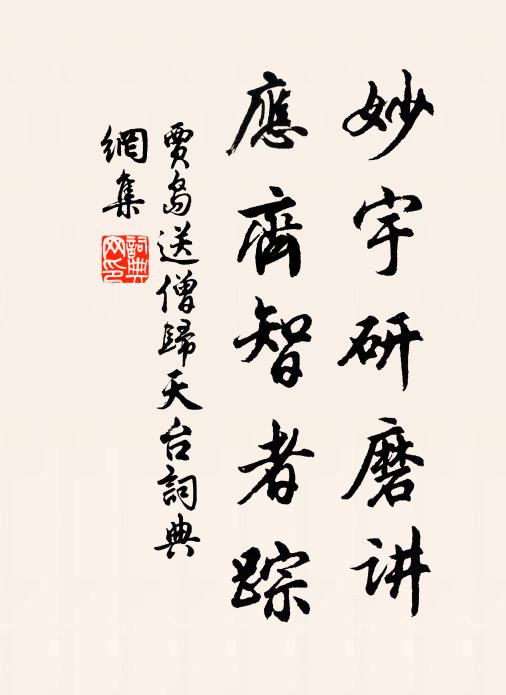 妙宇研磨讲
應齊智者踪
賈島送僧歸天台詞典
網集
詞典
网印